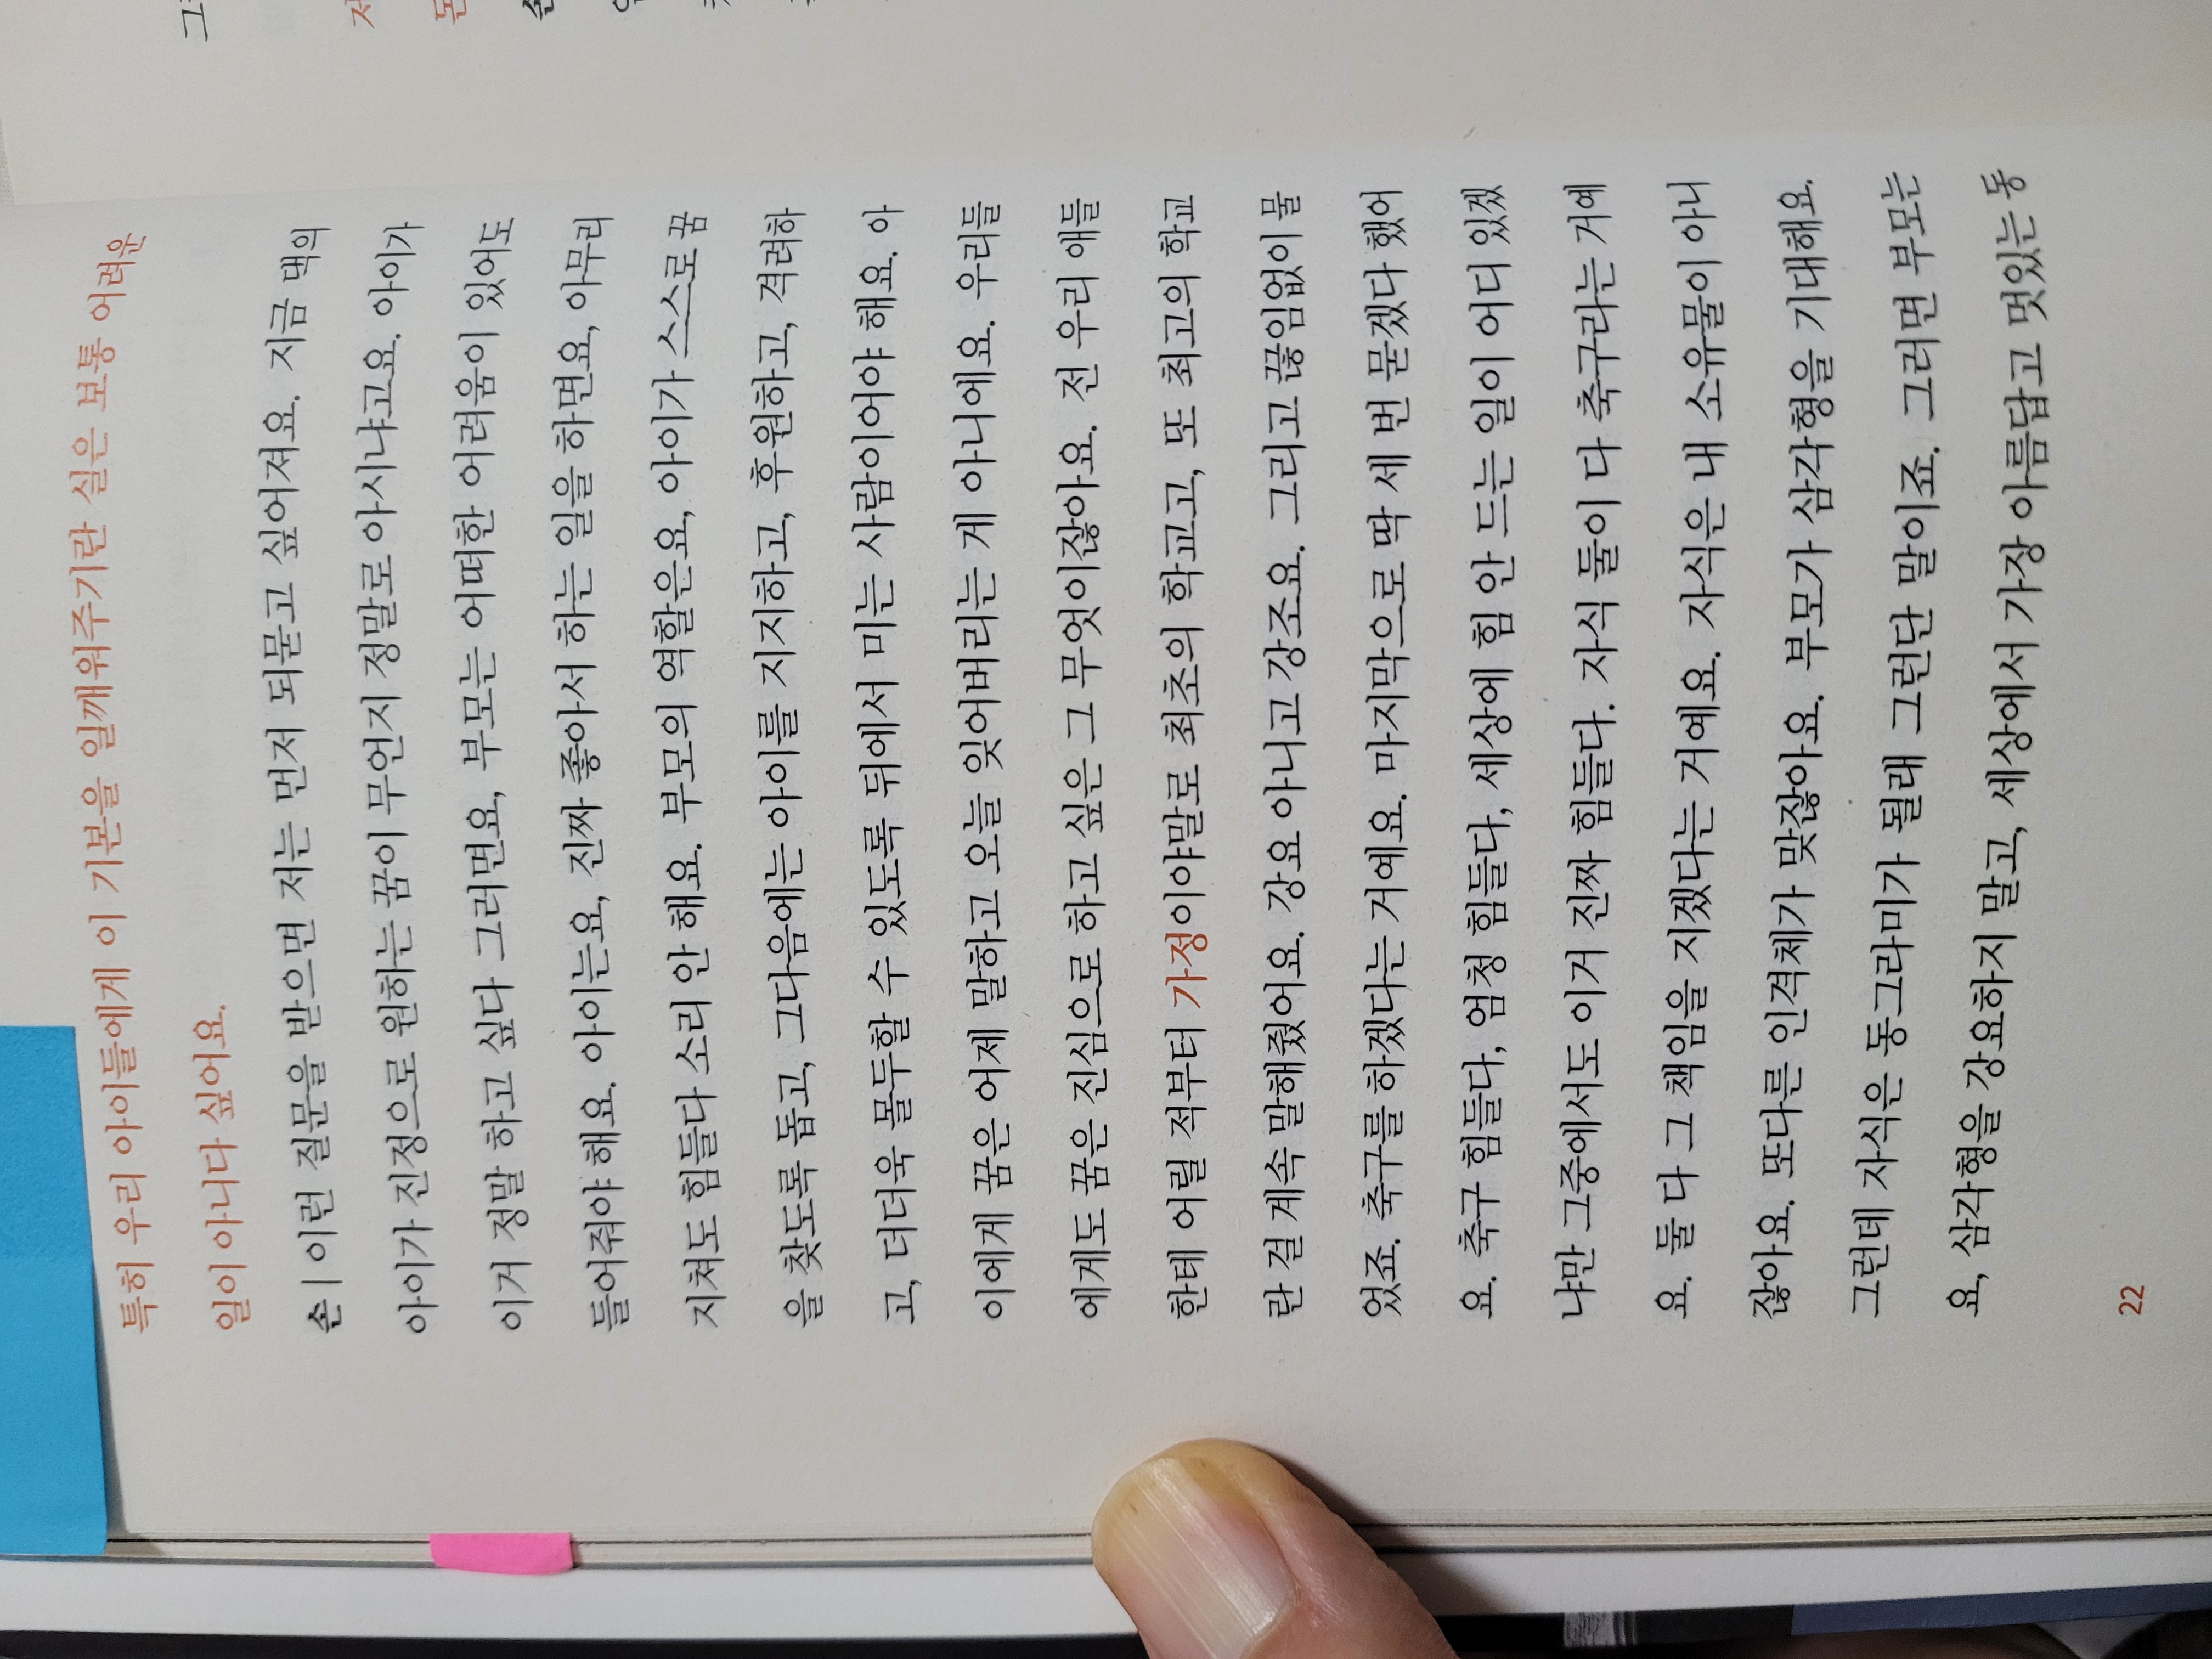 특히 우리 아이들에게 이 기본을 일깨워주기란 실은 보통 어려운
일이 아니다 싶어요.
손 | 이런 질문을 받으면 저는 먼저 되묻고 싶어져요. 지금 댁의
아이가 진정으로 원하는 꿈이 무언지 정말로 아시냐고요. 아이가
이거 정말 하고 싶다 그러면요, 부모는 어떠한 어려움이 있어도
들어줘야 해요. 아이는요, 진짜 좋아서 하는 일을 하면요, 아무리
지쳐도 힘들다 소리 안 해요. 부모의 역할은요, 아이가 스스로 꿈
을 찾도록 돕고, 그다음에는 아이를 지지하고, 후원하고, 격려하
고, 더더욱 몰두할 수 있도록 뒤에서 미는 사람이어야 해요. 아
이에게 꿈은 어제 말하고 오늘 잊어버리는 게 아니에요. 우리들
에게도 꿈은 진심으로 하고 싶은 그 무엇이잖아요. 전 우리 애들
한테 어릴 적부터 가정이야말로 최초의 학교고, 또 최고의 학교
란 걸 계속 말해줬어요. 강요 아니고 강조요. 그리고 끊임없이 물
었죠. 축구를 하겠다는 거예요. 마지막으로 딱 세 번 묻겠다 했어
요. 축구 힘들다, 엄청 힘들다, 세상에 힘 안 드는 일이 어디 있겠
냐만 그중에서도 이거 진짜 힘들다. 자식 둘이 다 축구라는 거예
요. 둘 다 그 책임을 지겠다는 거예요. 자식은 내 소유물이 아니
잖아요. 또다른 인격체가 맞잖아요. 부모가 삼각형을 기대해요.
그런데 자식은 동그라미가 될래 그런단 말이죠. 그러면 부모는
요, 삼각형을 강요하지 말고, 세상에서 가장 아름답고 멋있는 동
22